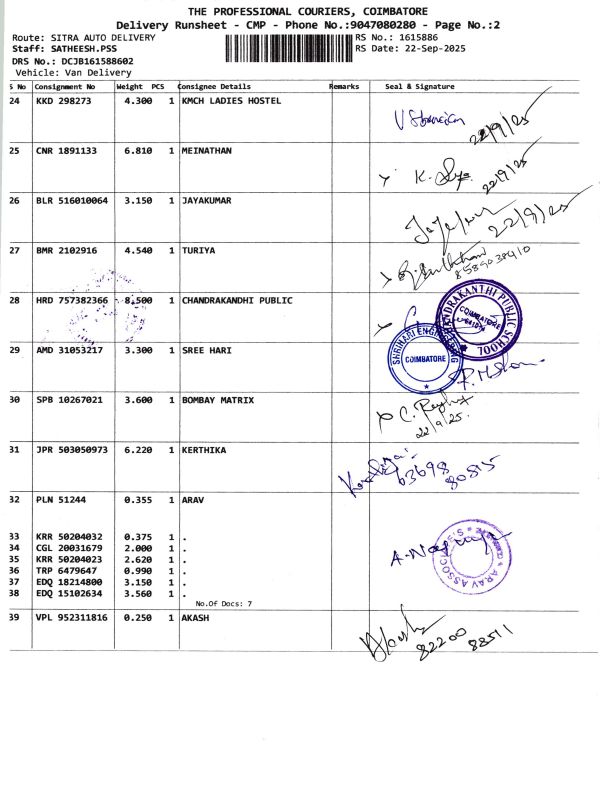 THE PROFESSIONAL COURIERS, COIMBATORE
Delivery Runsheet - CMP - Phone No.:9047080280 - Page No.:2
Route: SITRA AUTO DELIVERY RS No.: 1615886
Staff: SATHEESH.PSS RS Date: 22-Sep-2025
DRS No.: DCJB161588602
Vehicle: Van Delivery
S No Consignment No Weight PCS Consignee Details Remarks Seal & Signature
24 KKD 298273 4.300 1 KMCH LADIES HOSTEL
22/9/25
25 CNR 1891133 6.810 1 MEINATHAN
K. 22/9/25
26 BLR 516010064 3.150 1 JAYAKUMAR
22/9/25
27 BMR 2102916 4.540 1 TURIYA
28 HRD 757382366 8.500 1 CHANDRAKANDHI PUBLIC
CHANDRAKANTHI PUBLIC SCHOOL
COIMBATORE
29 AMD 31053217 3.300 1 SREE HARI
SHRIHARI ENGINEERING
COIMBATORE
30 SPB 10267021 3.600 1 BOMBAY MATRIX
C.
22/9/25.
31 JPR 503050973 6.220 1 KERTHIKA
63698
80515
32 PLN 51244 0.355 1 ARAV
33 KRR 50204032 0.375 1 .
34 CGL 20031679 2.000 1 .
35 KRR 50204023 2.620 1 .
36 TRP 6479647 0.990 1 .
37 EDQ 18214800 3.150 1 .
38 EDQ 15102634 3.560 1 .
ARAV ASSOCIATES
No.Of Docs: 7
39 VPL 952311816 0.250 1 AKASH
82200
88511